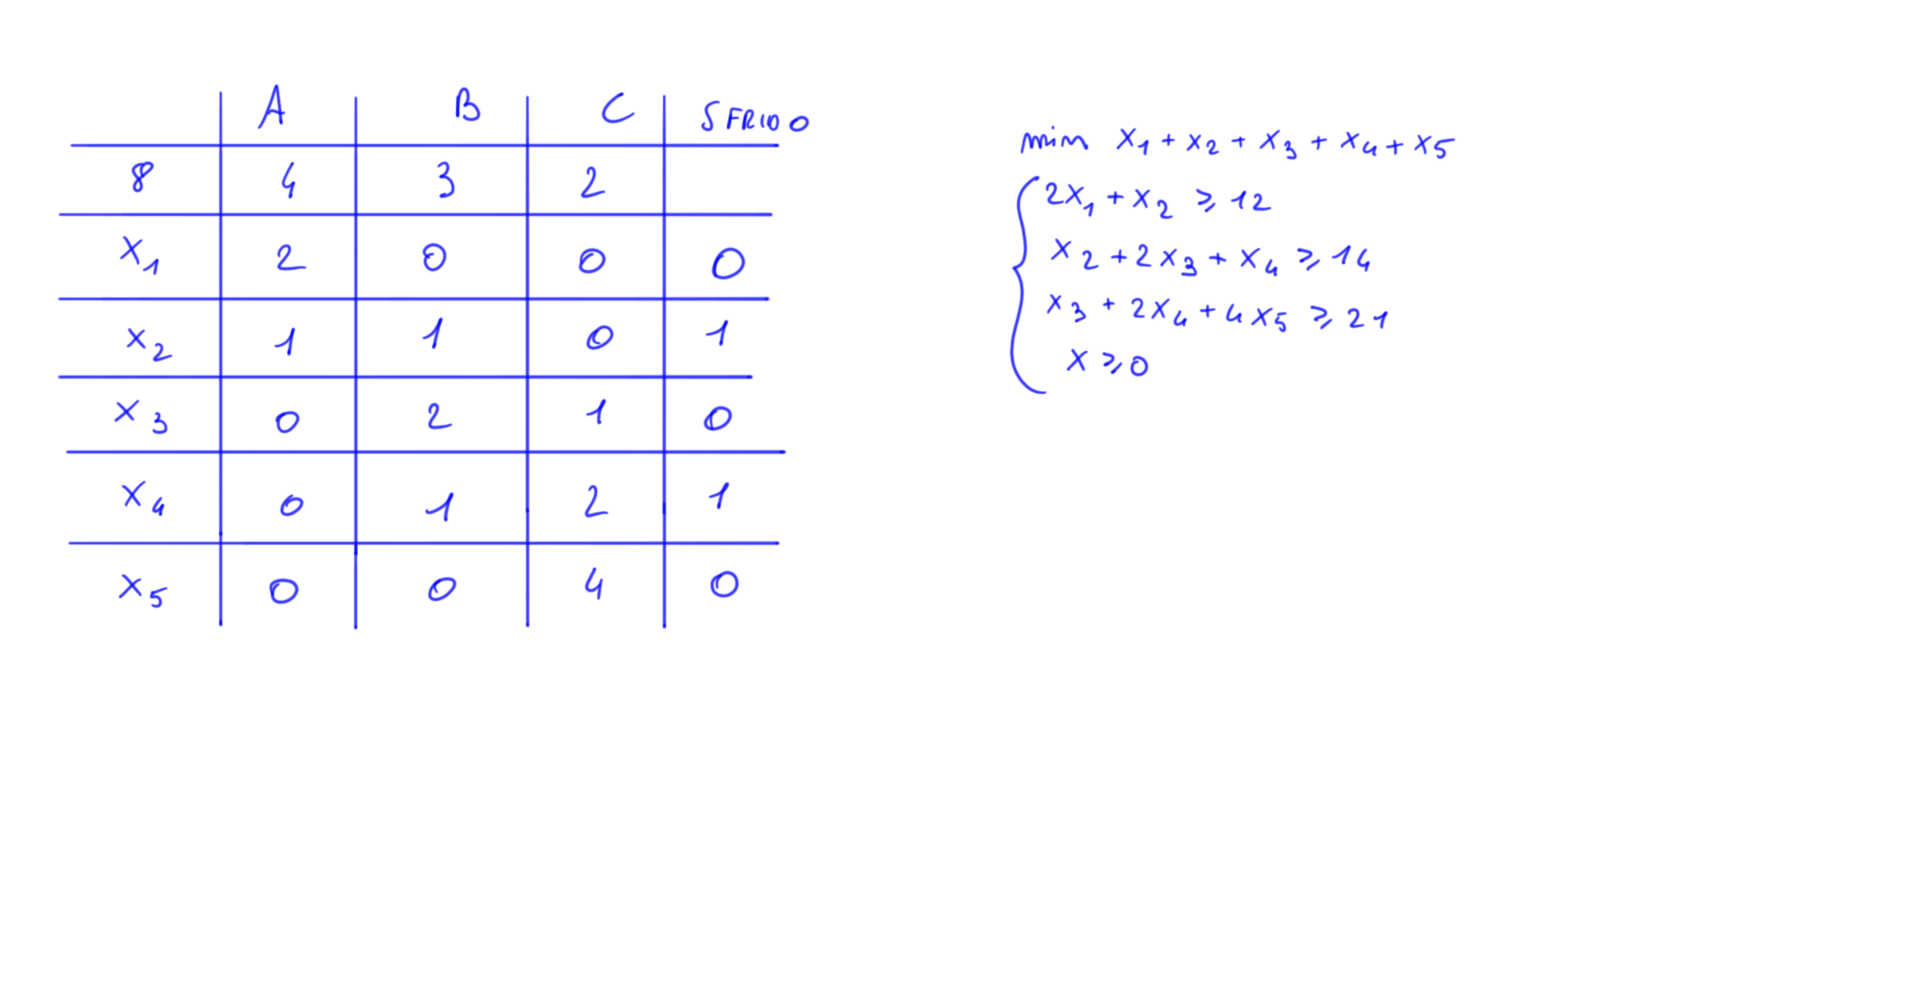 A B C SFRIDO
8 4 3 2
x1 2 0 0 0
x2 1 1 0 1
x3 0 2 1 0
x4 0 1 2 1
x5 0 0 4 0
min x1 + x2 + x3 + x4 + x5
2x1 + x2 ≥ 12
x2 + 2x3 + x4 ≥ 14
x3 + 2x4 + 4x5 ≥ 21
x ≥ 0